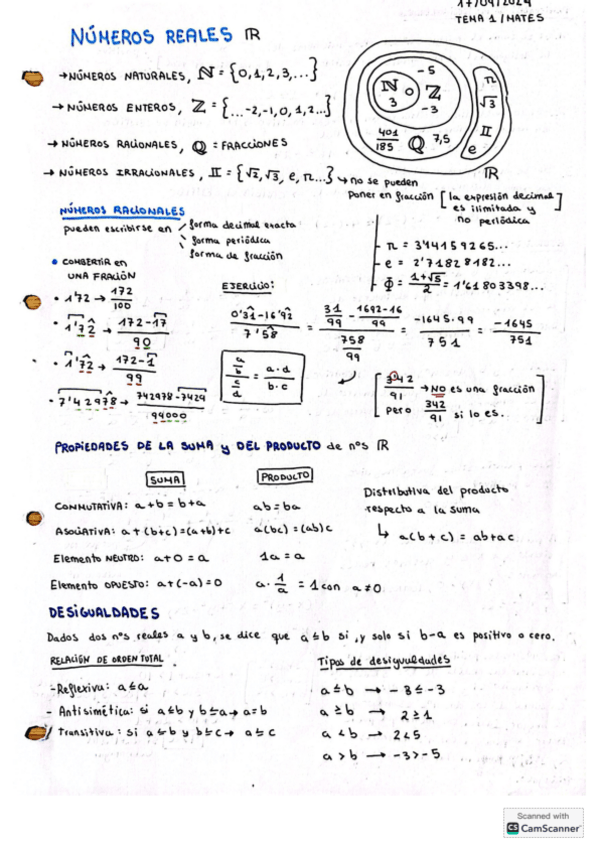 17/09/2024
TEMA 1/MATES
NÚMEROS REALES ℝ
→NÚMEROS NATURALES, ℕ = {0,1,2,3,...}
→NÚMEROS ENTEROS, ℤ = {...-2,-1,0,1,2...}
→ NÚMEROS RACIONALES, ℚ = FRACCIONES
→ NÚMEROS IRRACIONALES, 𝕀 = {√2,√3, e, π...} ↳ no se pueden poner en fracción [la expresión decimal es ilimitada y no periódica]
ℕ 0 3 ℤ -5 -3
401/185 ℚ 7,5
π √3 𝕀 e
ℝ
NÚMEROS RACIONALES
pueden escribirse en forma decimal exacta
forma periódica
forma de fracción
- π = 3'14159265...
- e = 2'71828182...
- Φ = (1+√5)/2 = 1'61803398...
• CONBERTIR en UNA FRACIÓN
• 1'72 → 172/100
• 1'72̂ → (172-17)/90
• 1'7̂2̂ → (172-1)/99
• 7'42978̂ → (742978-7429)/94000
EJERCICIO:
(0'31̂-16'92̂)/(7'58̂) = (31/99 - (1692-16)/99)/(758/99) = (-1645·99)/751 = -1645/751
(a/b)/(c/d) = (a·d)/(b·c)
[3'42/91 → NO es una fracción
pero 342/91 si lo es..]
PROPIEDADES DE LA SUMA y DEL PRODUCTO de nºs ℝ
SUMA
PRODUCTO
CONMUTATIVA: a+b = b+a
ab = ba
ASOCIATIVA: a+(b+c)=(a+b)+c
a(bc)=(ab)c
Elemento NEUTRO: a+0 = a
1a = a
Elemento OPUESTO: a+(-a)=0
a · 1/a = 1 con a≠0
Distributiva del producto
respecto a la suma
↳ a(b+c) = ab+ac
DESIGUALDADES
Dados dos nºs reales a y b, se dice que a≤b si, y solo si b-a es positivo o cero.
RELACIÓN DE ORDEN TOTAL
-Reflexiva: a≤a
- Antisimética: si a≤b y b≤a→ a=b
- Transitiva: si a≤b y b≤c → a≤c
Tipos de desigualdades
a≤b → -8≤-3
a≥b → 2≥1
a<b → 2<5
a>b → -3>-5
Scanned with
CS CamScanner